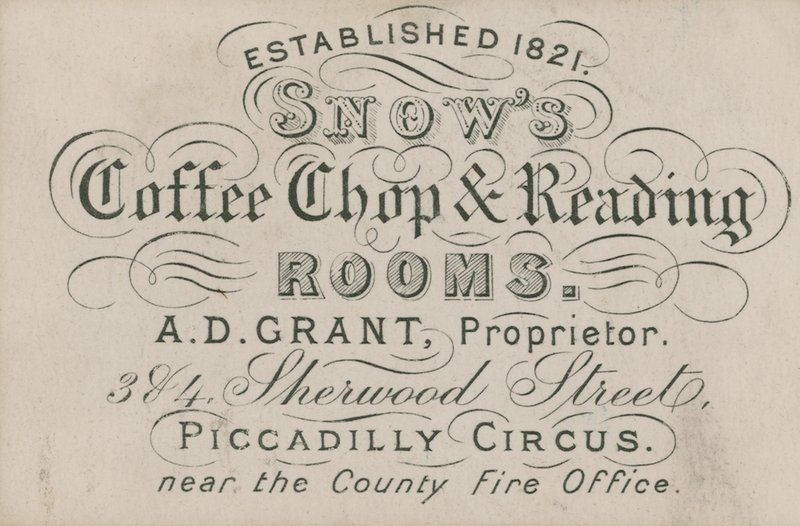 ESTABLISHED 1821.
SNOW'S
Coffee Chop & Reading
ROOMS.
A.D. GRANT, Proprietor.
3 & 4. Sherwood Street,
PICCADILLY CIRCUS.
near the County Fire Office.